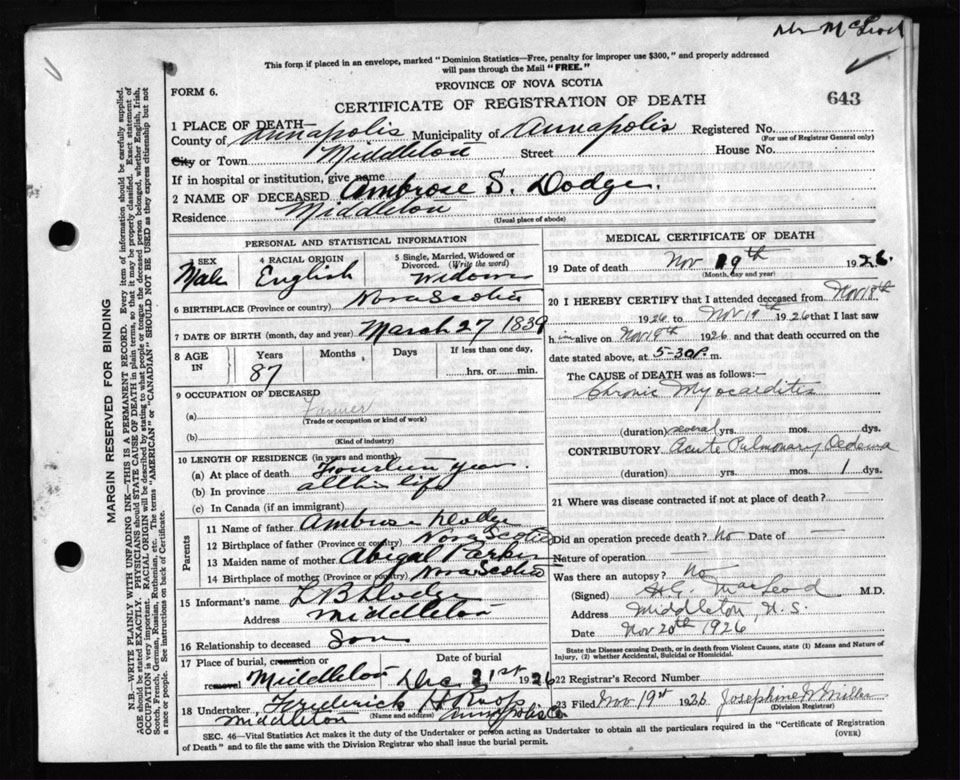 Mc Leod
This form if placed in an envelope, marked "Dominion Statistics—Free, penalty for improper use $300," and properly addressed
will pass through the Mail "FREE."
PROVINCE OF NOVA SCOTIA
FORM 6.
CERTIFICATE OF REGISTRATION OF DEATH
643
1 PLACE OF DEATH—
County of Annapolis Municipality of Annapolis Registered No.
(For use of Registrar General only)
City or Town Middleton Street House No.
If in hospital or institution, give name
2 NAME OF DECEASED Ambrose S. Dodge.
Residence Middleton
(Usual place of abode)
MARGIN RESERVED FOR BINDING
N.B.—WRITE PLAINLY WITH UNFADING INK—THIS IS A PERMANENT RECORD. Every item of information should be carefully supplied.
AGE should be stated EXACTLY. PHYSICIANS should STATE CAUSE OF DEATH in plain terms, so that it may be properly classified. Exact statement of
OCCUPATION is very important. RACIAL ORIGIN will be described by stating to what people or tongue the deceased person belonged, whether English, Irish,
Scotch, French, German, Russian, Ruthenian, etc. The terms "AMERICAN" or "CANADIAN" SHOULD NOT BE USED as they express citizenship but not
a race or people. See instructions on back of Certificate.
PERSONAL AND STATISTICAL INFORMATION
3 SEX
Male
4 RACIAL ORIGIN
English
5 Single, Married, Widowed or
Divorced. (Write the word)
Widower
6 BIRTHPLACE (Province or country) Nova Scotia
7 DATE OF BIRTH (month, day and year) March 27 1839
8 AGE
IN
Years Months Days If less than one day,
87 hrs. or min.
9 OCCUPATION OF DECEASED
(a) Farmer
(Trade or occupation or kind of work)
(b)
(Kind of industry)
10 LENGTH OF RESIDENCE (in years and months)
(a) At place of death Fourteen years.
(b) In province all his life
(c) In Canada (if an immigrant)
Parents
11 Name of father Ambrose Dodge
12 Birthplace of father (Province or country) Nova Scotia
13 Maiden name of mother Abigal
14 Birthplace of mother (Province or country) Nova Scotia
15 Informant's name L B Dodge
Address Middleton
16 Relationship to deceased Son
17 Place of burial, cremation or
removal Middleton
Date of burial
Dec 21st 1926
18 Undertaker, Frederick H Roop
Middleton (Name and address) Annapolis Co
MEDICAL CERTIFICATE OF DEATH
19 Date of death Nov 19th 1926.
(Month, day and year)
20 I HEREBY CERTIFY that I attended deceased from Nov 18th
1926 to Nov 19th 1926 that I last saw
him alive on Nov 19th 1926 and that death occurred on the
date stated above, at 5-30 P. m.
The CAUSE of DEATH was as follows:
Chronic Myocarditis
(duration) several yrs. mos. dys.
CONTRIBUTORY Acute Pulmonary Oedema
(duration) yrs. mos. 1 dys.
21 Where was disease contracted if not at place of death?
Did an operation precede death? No Date of
Nature of operation
Was there an autopsy? No
(Signed) MacLeod M.D.
Address Middleton, N.S.
Date Nov 20th 1926
State the Disease causing Death, or in death from Violent Causes, state (1) Means and Nature of
Injury, (2) whether Accidental, Suicidal or Homicidal.
22 Registrar's Record Number
23 Filed Nov 19th 1926 Josephine Miller
(Division Registrar)
SEC. 46—Vital Statistics Act makes it the duty of the Undertaker or person acting as Undertaker to obtain all the particulars required in the "Certificate of Registration
of Death" and to file the same with the Division Registrar who shall issue the burial permit.
(OVER)